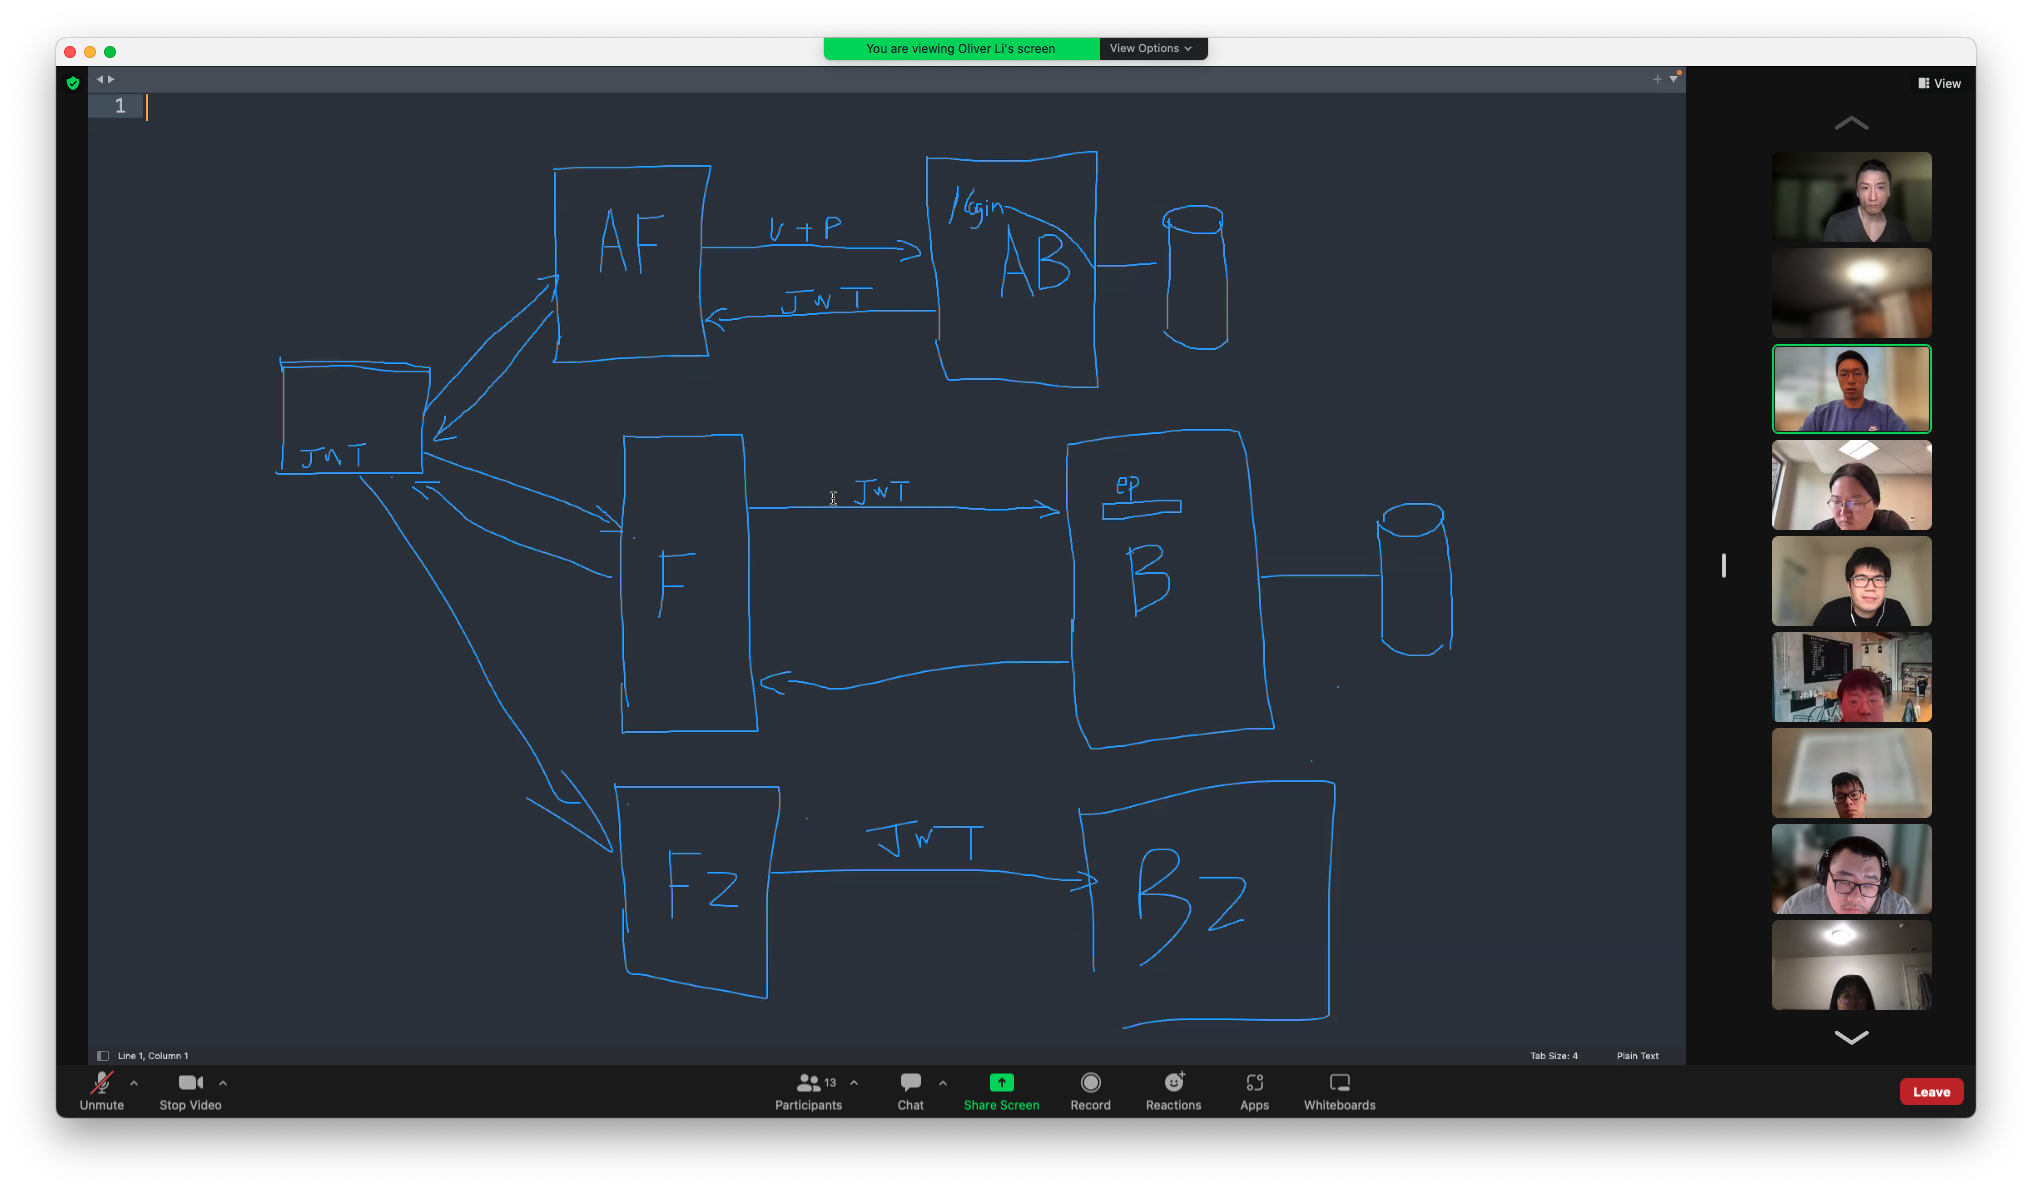 You are viewing Oliver Li's screen
View Options
View
1
/login
AF
U + P
AB
JWT
JWT
JWT
ep
F
B
JWT
F2
B2
Line 1, Column 1
Tab Size: 4
Plain Text
Unmute
Stop Video
13
Participants
Chat
Share Screen
Record
Reactions
Apps
Whiteboards
Leave